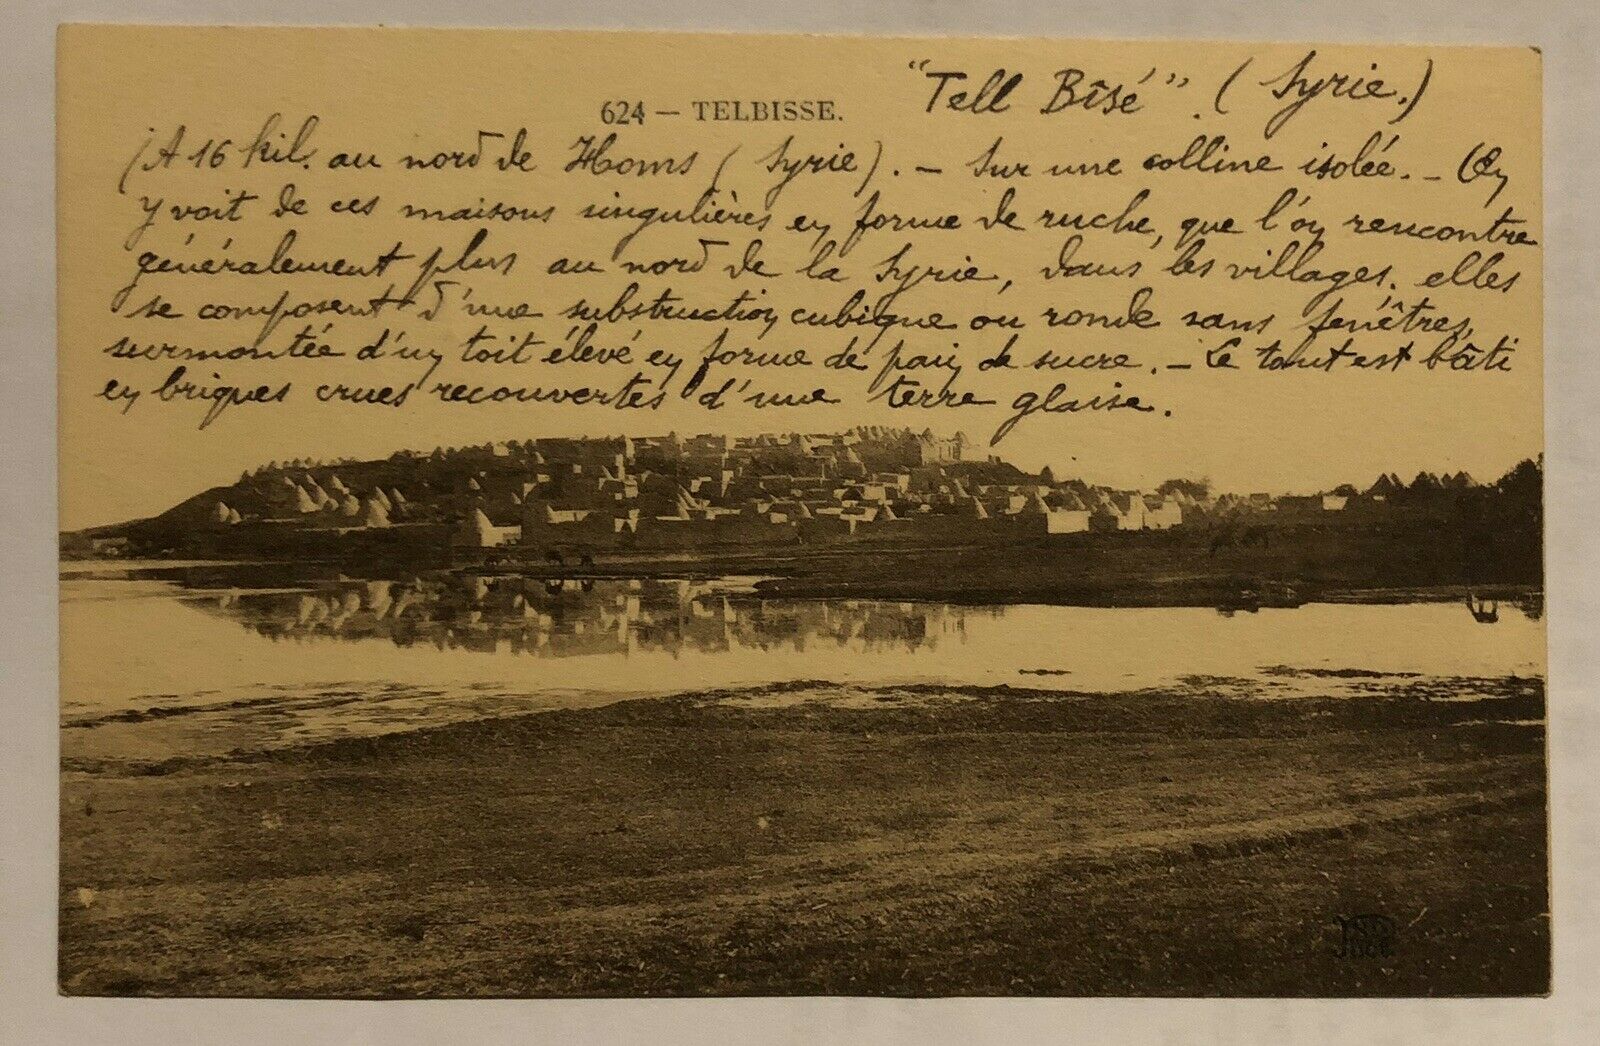 "Tell Bîsé". (Syrie.)
624 — TELBISSE.
(A 16 kil. au nord de Homs (Syrie). — Sur une colline isolée. — On
y voit de ces maisons singulières en forme de ruche, que l'on rencontre
généralement plus au nord de la Syrie, dans les villages. elles
se composent d'une substruction cubique ou ronde sans fenêtres,
surmontée d'un toit élevé en forme de pain de sucre. — Le tout est bâti
en briques crues recouvertes d'une terre glaise.